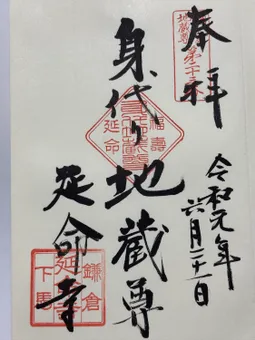 奉拝
身代り地蔵尊
延命寺
令和元年
六月二十一日
福寿
延命
鎌倉
延命寺
下馬